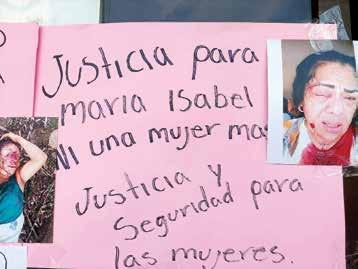 Justicia para
maria Isabel
Ni una mujer mas
Justicia y
Seguridad para
las mujeres.